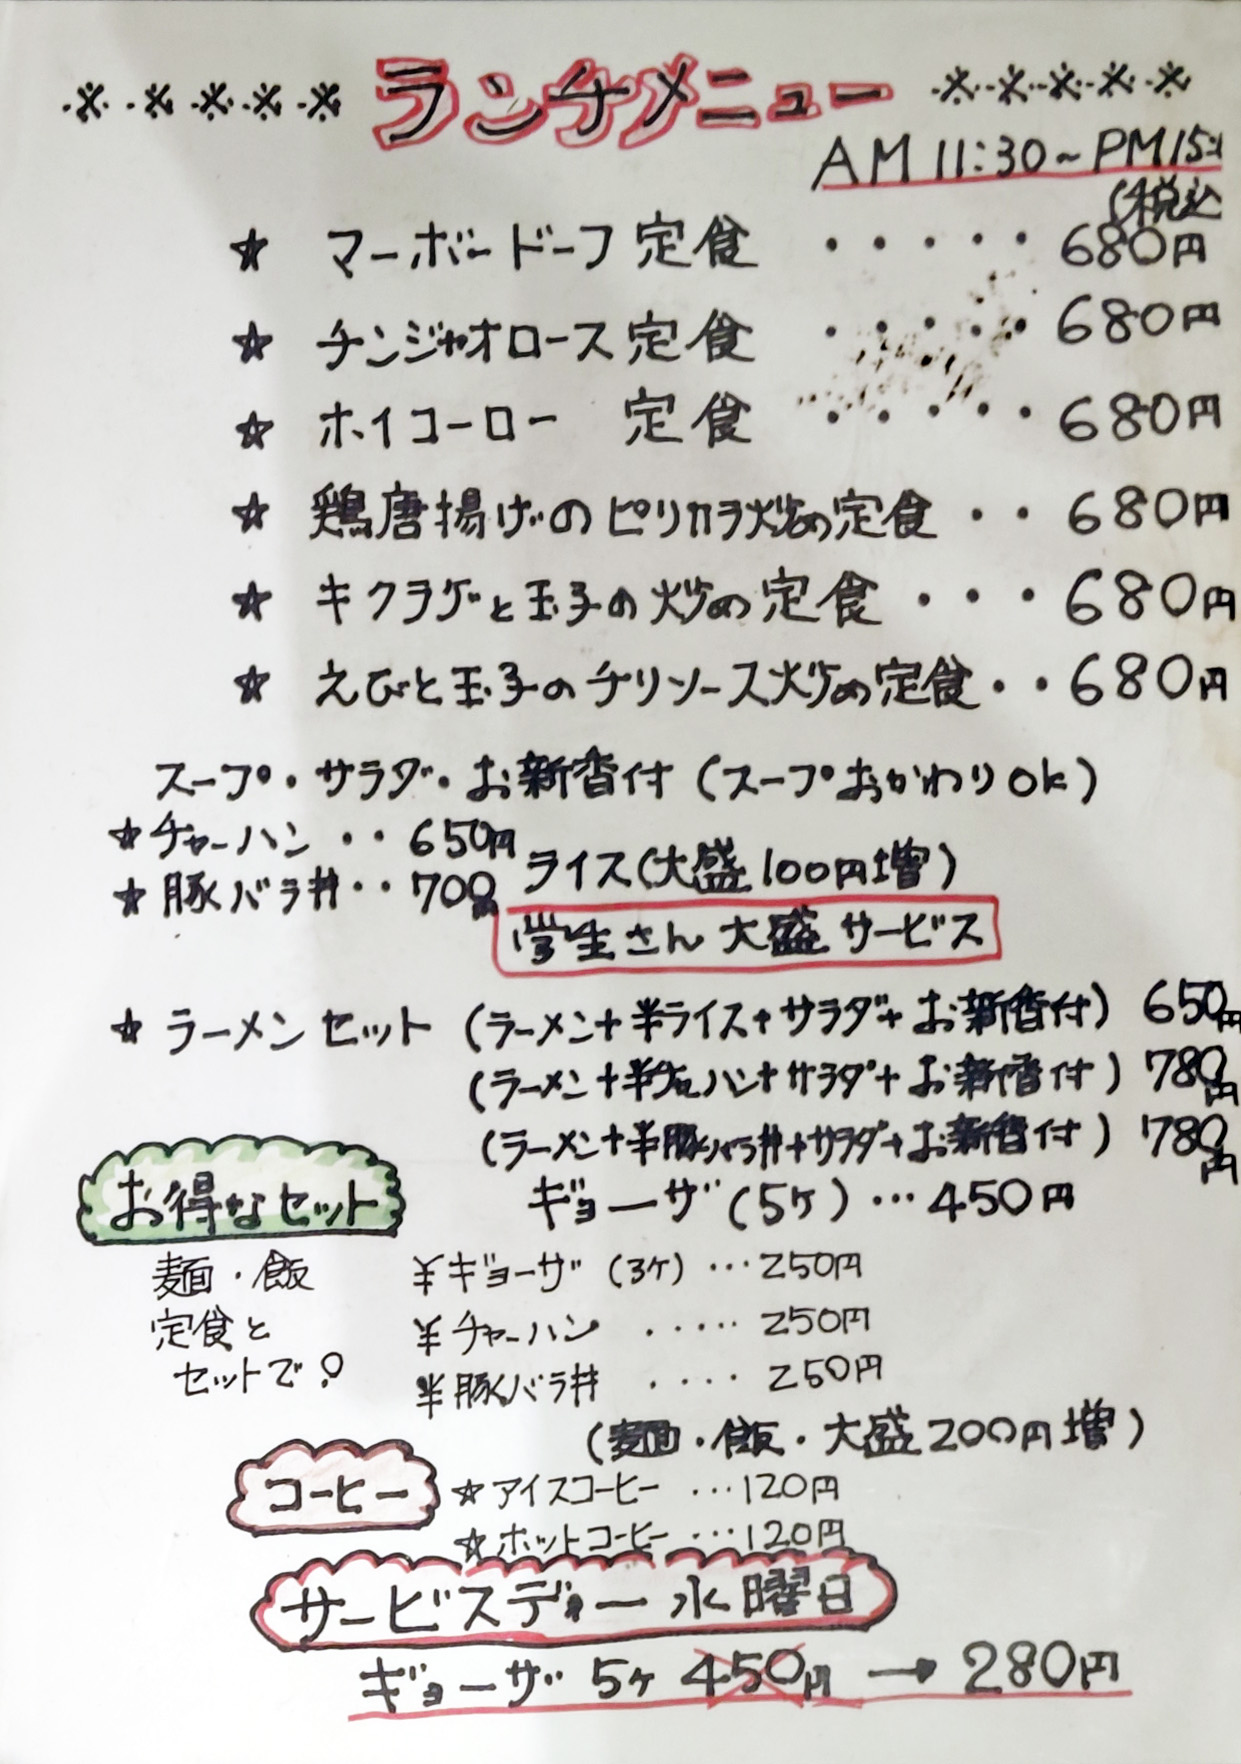 ランチメニュー
AM 11:30~PM15:
(税込
☆ マーボードーフ 定食 ・・・・・ 680円
☆ チンジャオロース 定食 ・・・・・ 680円
☆ ホイコーロー 定食 ・・・・・ 680円
☆ 鶏唐揚げのピリカラ炒め定食 ・・ 680円
☆ キクラゲと玉子の炒め定食 ・・・ 680円
☆ えびと玉子のチリソース炒め定食・・680円
スープ・サラダ・お新香付 (スープおかわりOK)
☆ チャーハン ・・ 650円
☆ 豚バラ丼・・ 700円
ライス(大盛100円増)
学生さん 大盛 サービス
☆ ラーメンセット (ラーメン+半ライス+サラダ+お新香付) 650円
(ラーメン+半チャーハン+サラダ+お新香付) 780円
(ラーメン+半豚バラ丼+サラダ+お新香付) 780円
ギョーザ (5ケ) ・・・450円
お得なセット
麺・飯
定食と
セットで!
半ギョーザ (3ケ) ・・・250円
半チャーハン ・・・・・ 250円
半豚バラ丼 ・・・・ 250円
(麺・飯・大盛200円増)
コーヒー
☆アイスコーヒー ・・・120円
☆ホットコーヒー ・・・120円
サービスディー 水曜日
ギョーザ 5ケ 450円 → 280円